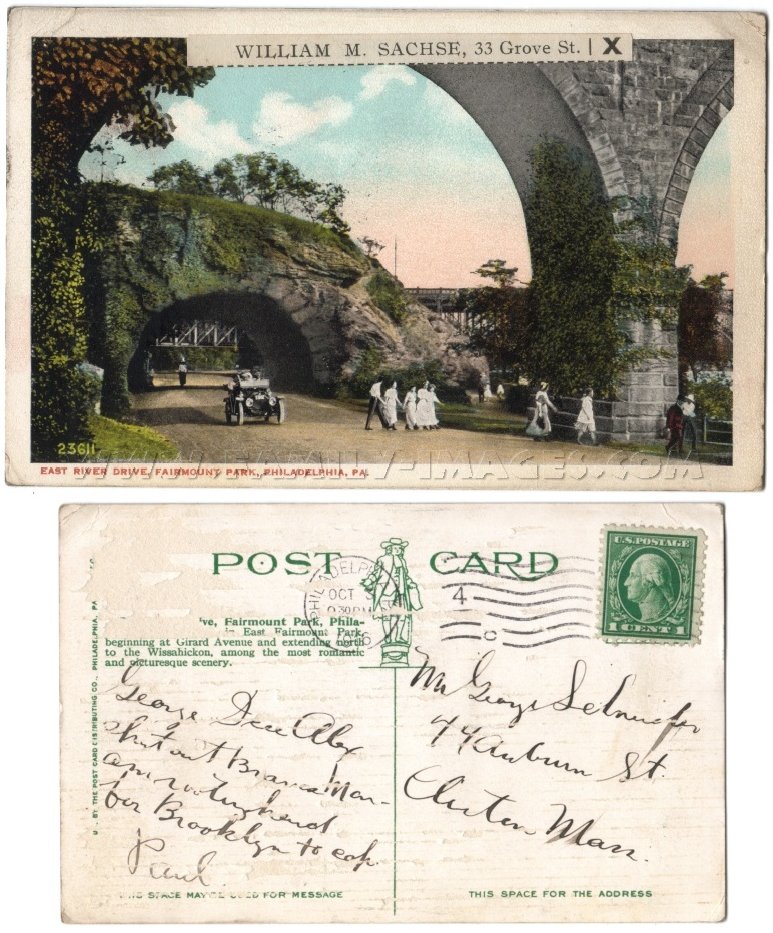 WILLIAM M. SACHSE, 33 Grove St. | X
23611
EAST RIVER DRIVE, FAIRMOUNT PARK, PHILADELPHIA, PA.
WWW.FAMILY-IMAGES.COM
POST CARD
PHILADELPHIA
OCT
930PM
4
C
U.S. POSTAGE
1 CENT 1
've, Fairmount Park, Phila-
East Fairmount Park,
beginning at Girard Avenue and extending north
to the Wissahickon, among the most romantic
and picturesque scenery.
BY THE POST CARD DISTRIBUTING CO., PHILADELPHIA, PA
George I see Alex
shut out Braves
am rooting hard
for Brooklyn to cop
Paul
Mr George Schneider
74 Auburn St.
Clinton Mass.
THIS SPACE MAY BE USED FOR MESSAGE
THIS SPACE FOR THE ADDRESS